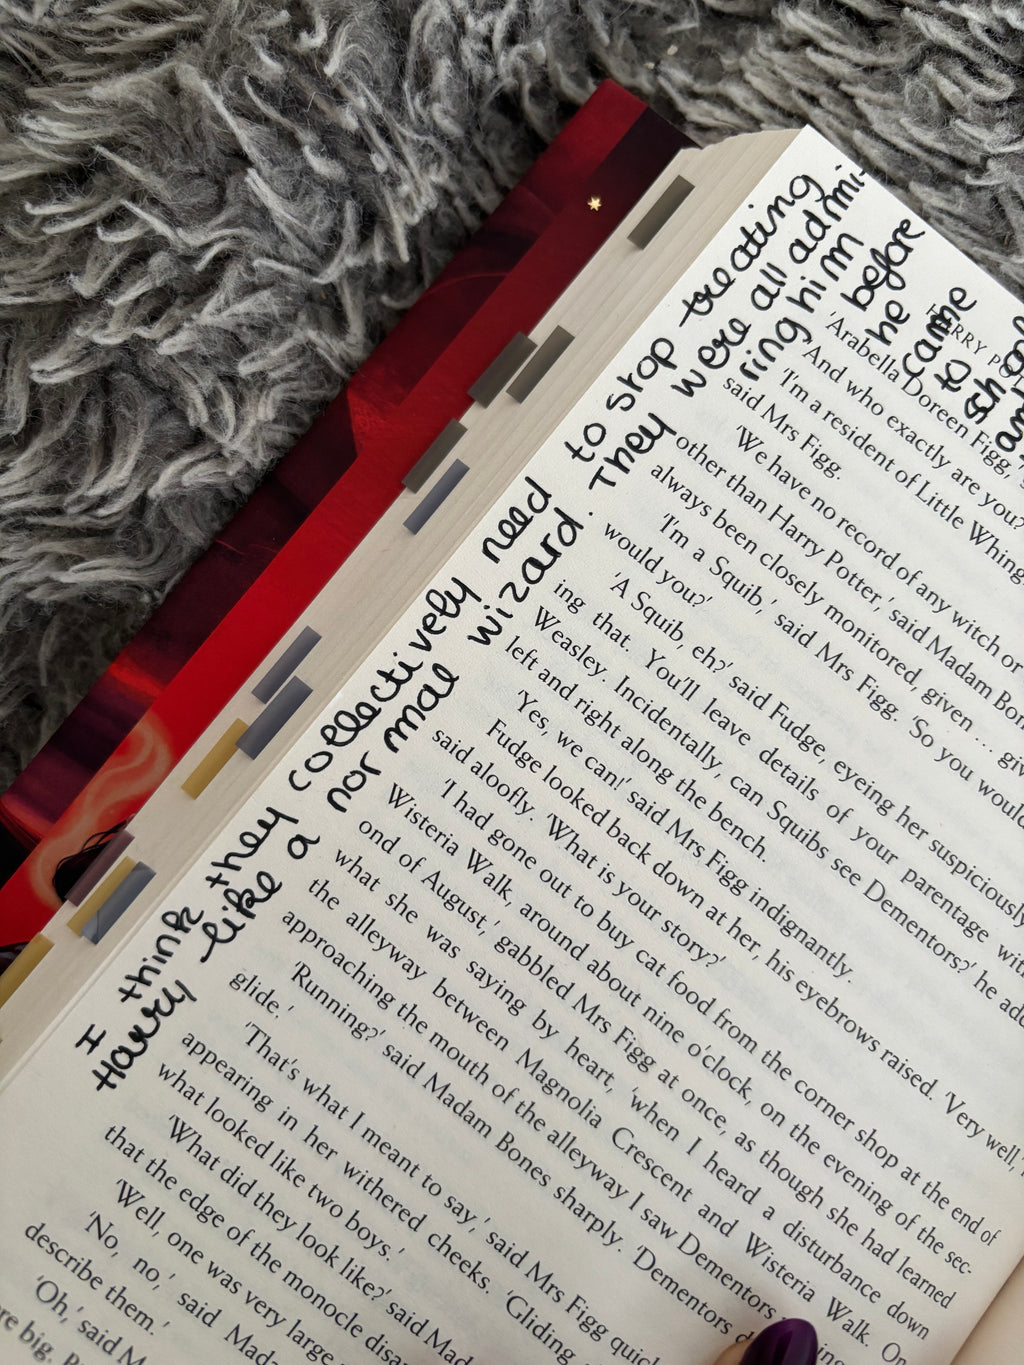 I think they collectively need to stop treating
Harry like a normal wizard. They were all admi-
ring him
before
he
came
to
HARRY PO
'Arabella Doreen Figg,'
'And who exactly are you?'
'I'm a resident of Little Whing
said Mrs Figg.
'We have no record of any witch or
other than Harry Potter,' said Madam Bon
always been closely monitored, given ... giv
'I'm a Squib,' said Mrs Figg. 'So you would
would you?'
'A Squib, eh?' said Fudge, eyeing her suspiciously
ing that. You'll leave details of your parentage with
Weasley. Incidentally, can Squibs see Dementors?' he add
left and right along the bench.
'Yes, we can!' said Mrs Figg indignantly.
Fudge looked back down at her, his eyebrows raised. 'Very well,'
said aloofly. 'What is your story?'
'I had gone out to buy cat food from the corner shop at the end of
Wisteria Walk, around about nine o'clock, on the evening of the sec-
ond of August,' gabbled Mrs Figg at once, as though she had learned
what she was saying by heart, 'when I heard a disturbance down
the alleyway between Magnolia Crescent and Wisteria Walk. On
approaching the mouth of the alleyway I saw Dementors
'Running?' said Madam Bones sharply. 'Dementors
glide.'
'That's what I meant to say,' said Mrs Figg quic
appearing in her withered cheeks. 'Gliding
what looked like two boys.'
'What did they look like?' said Mad
that the edge of the monocle disa
'Well, one was very large
'No, no,' said Mada
describe them.'
'Oh,' said M
re big.